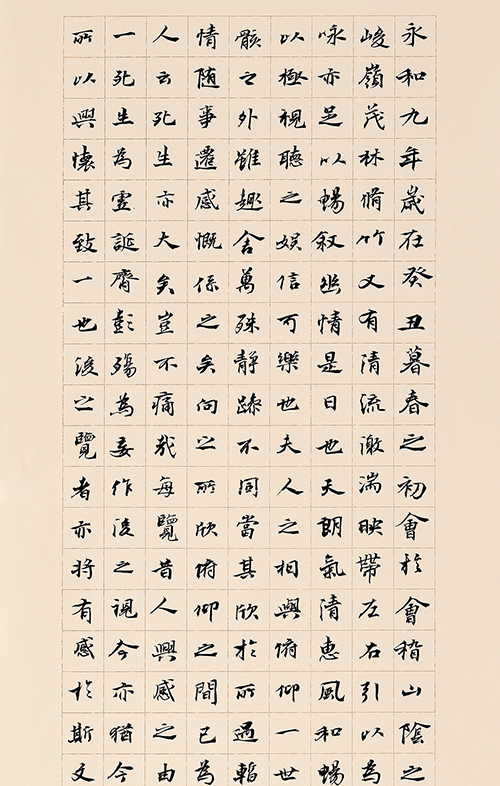 永和九年歲在癸丑暮春之初會於會稽山陰之
峻嶺茂林脩竹又有清流激湍映帶左右引以為
咏亦足以暢叙幽情是日也天朗氣清惠風和暢
以極視聽之娛信可樂也夫人之相與俯仰一世
骸之外雖趣舍萬殊靜躁不同當其欣於所遇暫
情随事遷感慨係之矣向之所欣俯仰之間已為
人云死生亦大矣豈不痛哉每覽昔人興感之由
一死生為虛誕齊彭殤為妄作後之視今亦猶今
所以興懷其致一也後之覽者亦將有感於斯文